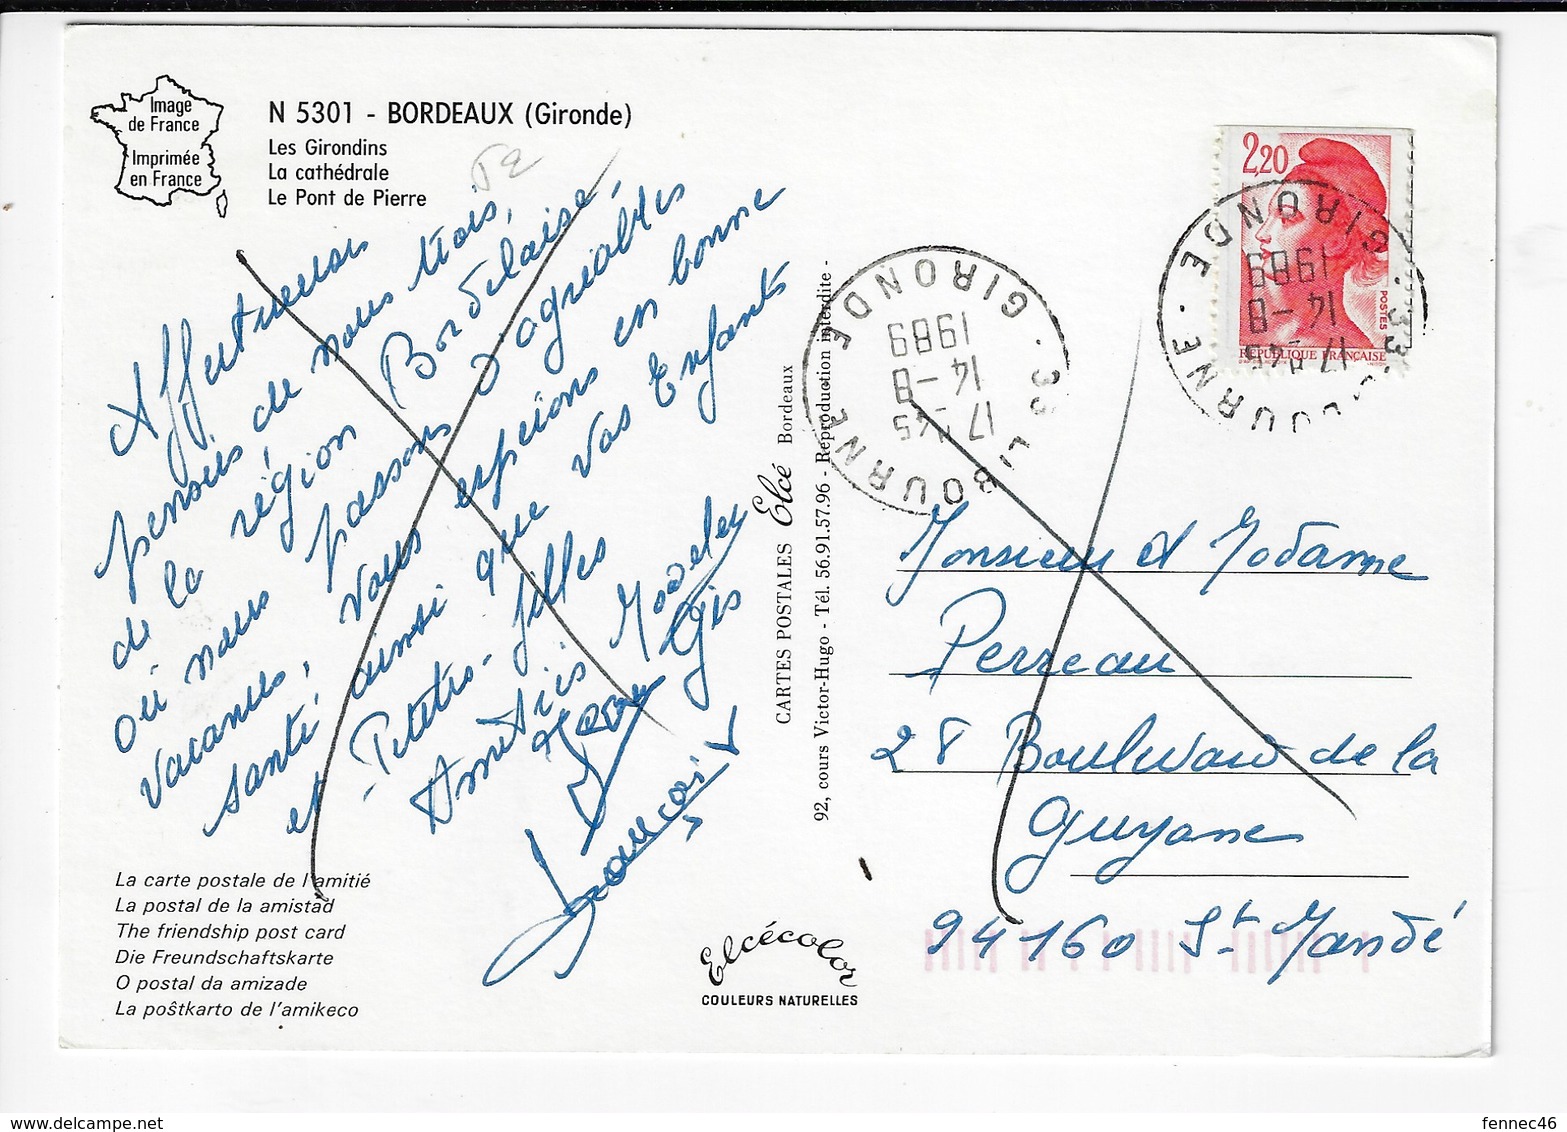 Image
de France
Imprimée
en France
N 5301 - BORDEAUX (Gironde)
Les Girondins
La cathédrale
Le Pont de Pierre
Affectueuses
pensées de nous trois,
de la région Bordelaise
où nous passons d'agréables
vacances, Vous espérons en bonne
santé ainsi que vos Enfants
et Petites-filles
Amitiés
Gis
François
La carte postale de l'amitié
La postal de la amistad
The friendship post card
Die Freundschaftskarte
O postal da amizade
La poŝtkarto de l'amikeco
CARTES POSTALES Elcé Bordeaux
92, cours Victor-Hugo - Tél. 56.91.57.96 - Reproduction interdite -
Elcécolor
COULEURS NATURELLES
2,20
POSTES
REPUBLIQUE FRANÇAISE
33 LIBOURNE · GIRONDE
17 H 45
14-8
1989
33 LIBOURNE · GIRONDE
17 H 45
14-8
1989
Monsieur et Madame
Perreau
28 Boulevard de la
Guyane
94160 St Mandé
fennec46